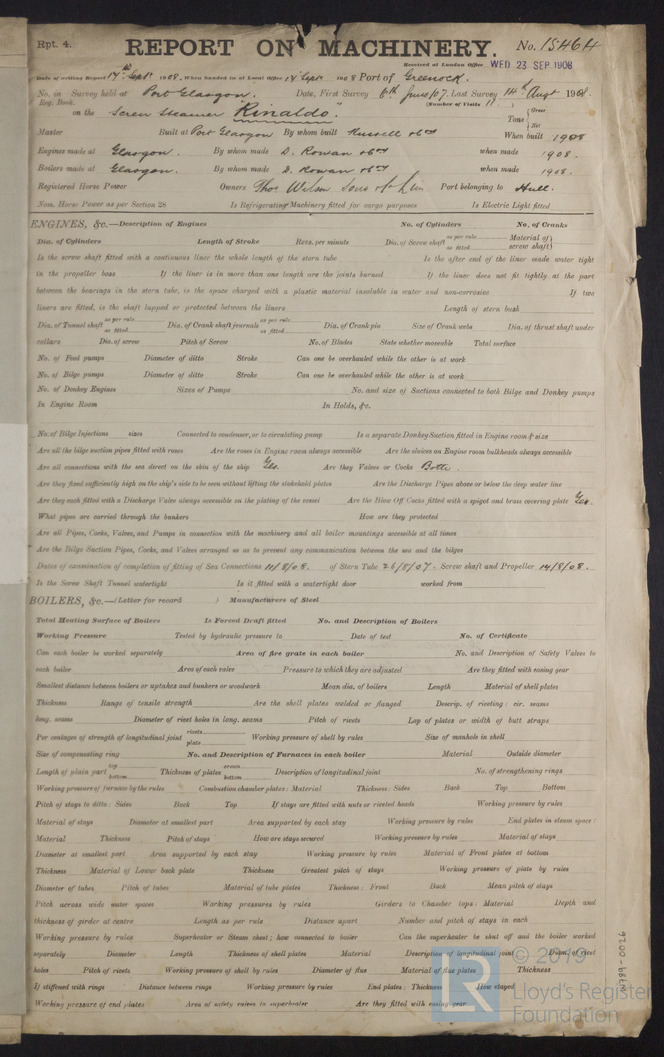 Rpt. 4. REPORT ON MACHINERY. No. 15464
Received at London Office WED 23 SEP 1908
Date of writing Report 17th Sept 1908. When handed in at Local Office 17 Sept 1908 Port of Greenock.
No. in Survey held at Port Glasgow. Date, First Survey 6th June/07. Last Survey 14th Augt 1908
Reg. Book. (Number of Visits 11)
on the Screw Steamer "Rinaldo." Tons { Gross Net
Master Built at Port Glasgow By whom built Russell & Co When built 1908
Engines made at Glasgow. By whom made D. Rowan & Co when made 1908.
Boilers made at Glasgow. By whom made D. Rowan & Co when made 1908.
Registered Horse Power Owners Thos Wilson Sons & Co Lim Port belonging to Hull.
Nom. Horse Power as per Section 28 Is Refrigerating Machinery fitted for cargo purposes Is Electric Light fitted
ENGINES, &c.—Description of Engines No. of Cylinders No. of Cranks
Dia. of Cylinders Length of Stroke Revs. per minute Dia. of Screw shaft as per rule as fitted Material of screw shaft
Is the screw shaft fitted with a continuous liner the whole length of the stern tube Is the after end of the liner made water tight
in the propeller boss If the liner is in more than one length are the joints burned If the liner does not fit tightly at the part
between the bearings in the stern tube, is the space charged with a plastic material insoluble in water and non-corrosive If two
liners are fitted, is the shaft lapped or protected between the liners Length of stern bush
Dia. of Tunnel shaft as per rule as fitted Dia. of Crank shaft journals as per rule as fitted Dia. of Crank pin Size of Crank webs Dia. of thrust shaft under
collars Dia. of screw Pitch of Screw No. of Blades State whether moveable Total surface
No. of Feed pumps Diameter of ditto Stroke Can one be overhauled while the other is at work
No. of Bilge pumps Diameter of ditto Stroke Can one be overhauled while the other is at work
No. of Donkey Engines Sizes of Pumps No. and size of Suctions connected to both Bilge and Donkey pumps
In Engine Room In Holds, &c.
No. of Bilge Injections sizes Connected to condenser, or to circulating pump Is a separate Donkey Suction fitted in Engine room & size
Are all the bilge suction pipes fitted with roses Are the roses in Engine room always accessible Are the sluices on Engine room bulkheads always accessible
Are all connections with the sea direct on the skin of the ship Yes. Are they Valves or Cocks Both.
Are they fixed sufficiently high on the ship's side to be seen without lifting the stokehold plates Are the Discharge Pipes above or below the deep water line
Are they each fitted with a Discharge Valve always accessible on the plating of the vessel Are the Blow Off Cocks fitted with a spigot and brass covering plate Yes.
What pipes are carried through the bunkers How are they protected
Are all Pipes, Cocks, Valves, and Pumps in connection with the machinery and all boiler mountings accessible at all times
Are the Bilge Suction Pipes, Cocks, and Valves arranged so as to prevent any communication between the sea and the bilges
Dates of examination of completion of fitting of Sea Connections 11/8/08. of Stern Tube 26/8/07. Screw shaft and Propeller 14/8/08.
Is the Screw Shaft Tunnel watertight Is it fitted with a watertight door worked from
BOILERS, &c.—(Letter for record ) Manufacturers of Steel
Total Heating Surface of Boilers Is Forced Draft fitted No. and Description of Boilers
Working Pressure Tested by hydraulic pressure to Date of test No. of Certificate
Can each boiler be worked separately Area of fire grate in each boiler No. and Description of Safety Valves to
each boiler Area of each valve Pressure to which they are adjusted Are they fitted with easing gear
Smallest distance between boilers or uptakes and bunkers or woodwork Mean dia. of boilers Length Material of shell plates
Thickness Range of tensile strength Are the shell plates welded or flanged Descrip. of riveting : cir. seams
long. seams Diameter of rivet holes in long. seams Pitch of rivets Lap of plates or width of butt straps
Per centages of strength of longitudinal joint rivets plate Working pressure of shell by rules Size of manhole in shell
Size of compensating ring No. and Description of Furnaces in each boiler Material Outside diameter
Length of plain part top bottom Thickness of plates crown bottom Description of longitudinal joint No. of strengthening rings
Working pressure of furnace by the rules Combustion chamber plates : Material Thickness : Sides Back Top Bottom
Pitch of stays to ditto : Sides Back Top If stays are fitted with nuts or riveted heads Working pressure by rules
Material of stays Diameter at smallest part Area supported by each stay Working pressure by rules End plates in steam space :
Material Thickness Pitch of stays How are stays secured Working pressure by rules Material of stays
Diameter at smallest part Area supported by each stay Working pressure by rules Material of Front plates at bottom
Thickness Material of Lower back plate Thickness Greatest pitch of stays Working pressure of plate by rules
Diameter of tubes Pitch of tubes Material of tube plates Thickness : Front Back Mean pitch of stays
Pitch across wide water spaces Working pressures by rules Girders to Chamber tops : Material Depth and
thickness of girder at centre Length as per rule Distance apart Number and pitch of stays in each
Working pressure by rules Superheater or Steam chest ; how connected to boiler Can the superheater be shut off and the boiler worked
separately Diameter Length Thickness of shell plates Material Description of longitudinal joint Diam. of rivet
holes Pitch of rivets Working pressure of shell by rules Diameter of flue Material of flue plates Thickness
If stiffened with rings Distance between rings Working pressure by rules End plates : Thickness How stayed
Working pressure of end plates Area of safety valves to superheater Are they fitted with easing gear
W789-0026
LR © 2019 Lloyd's Register Foundation